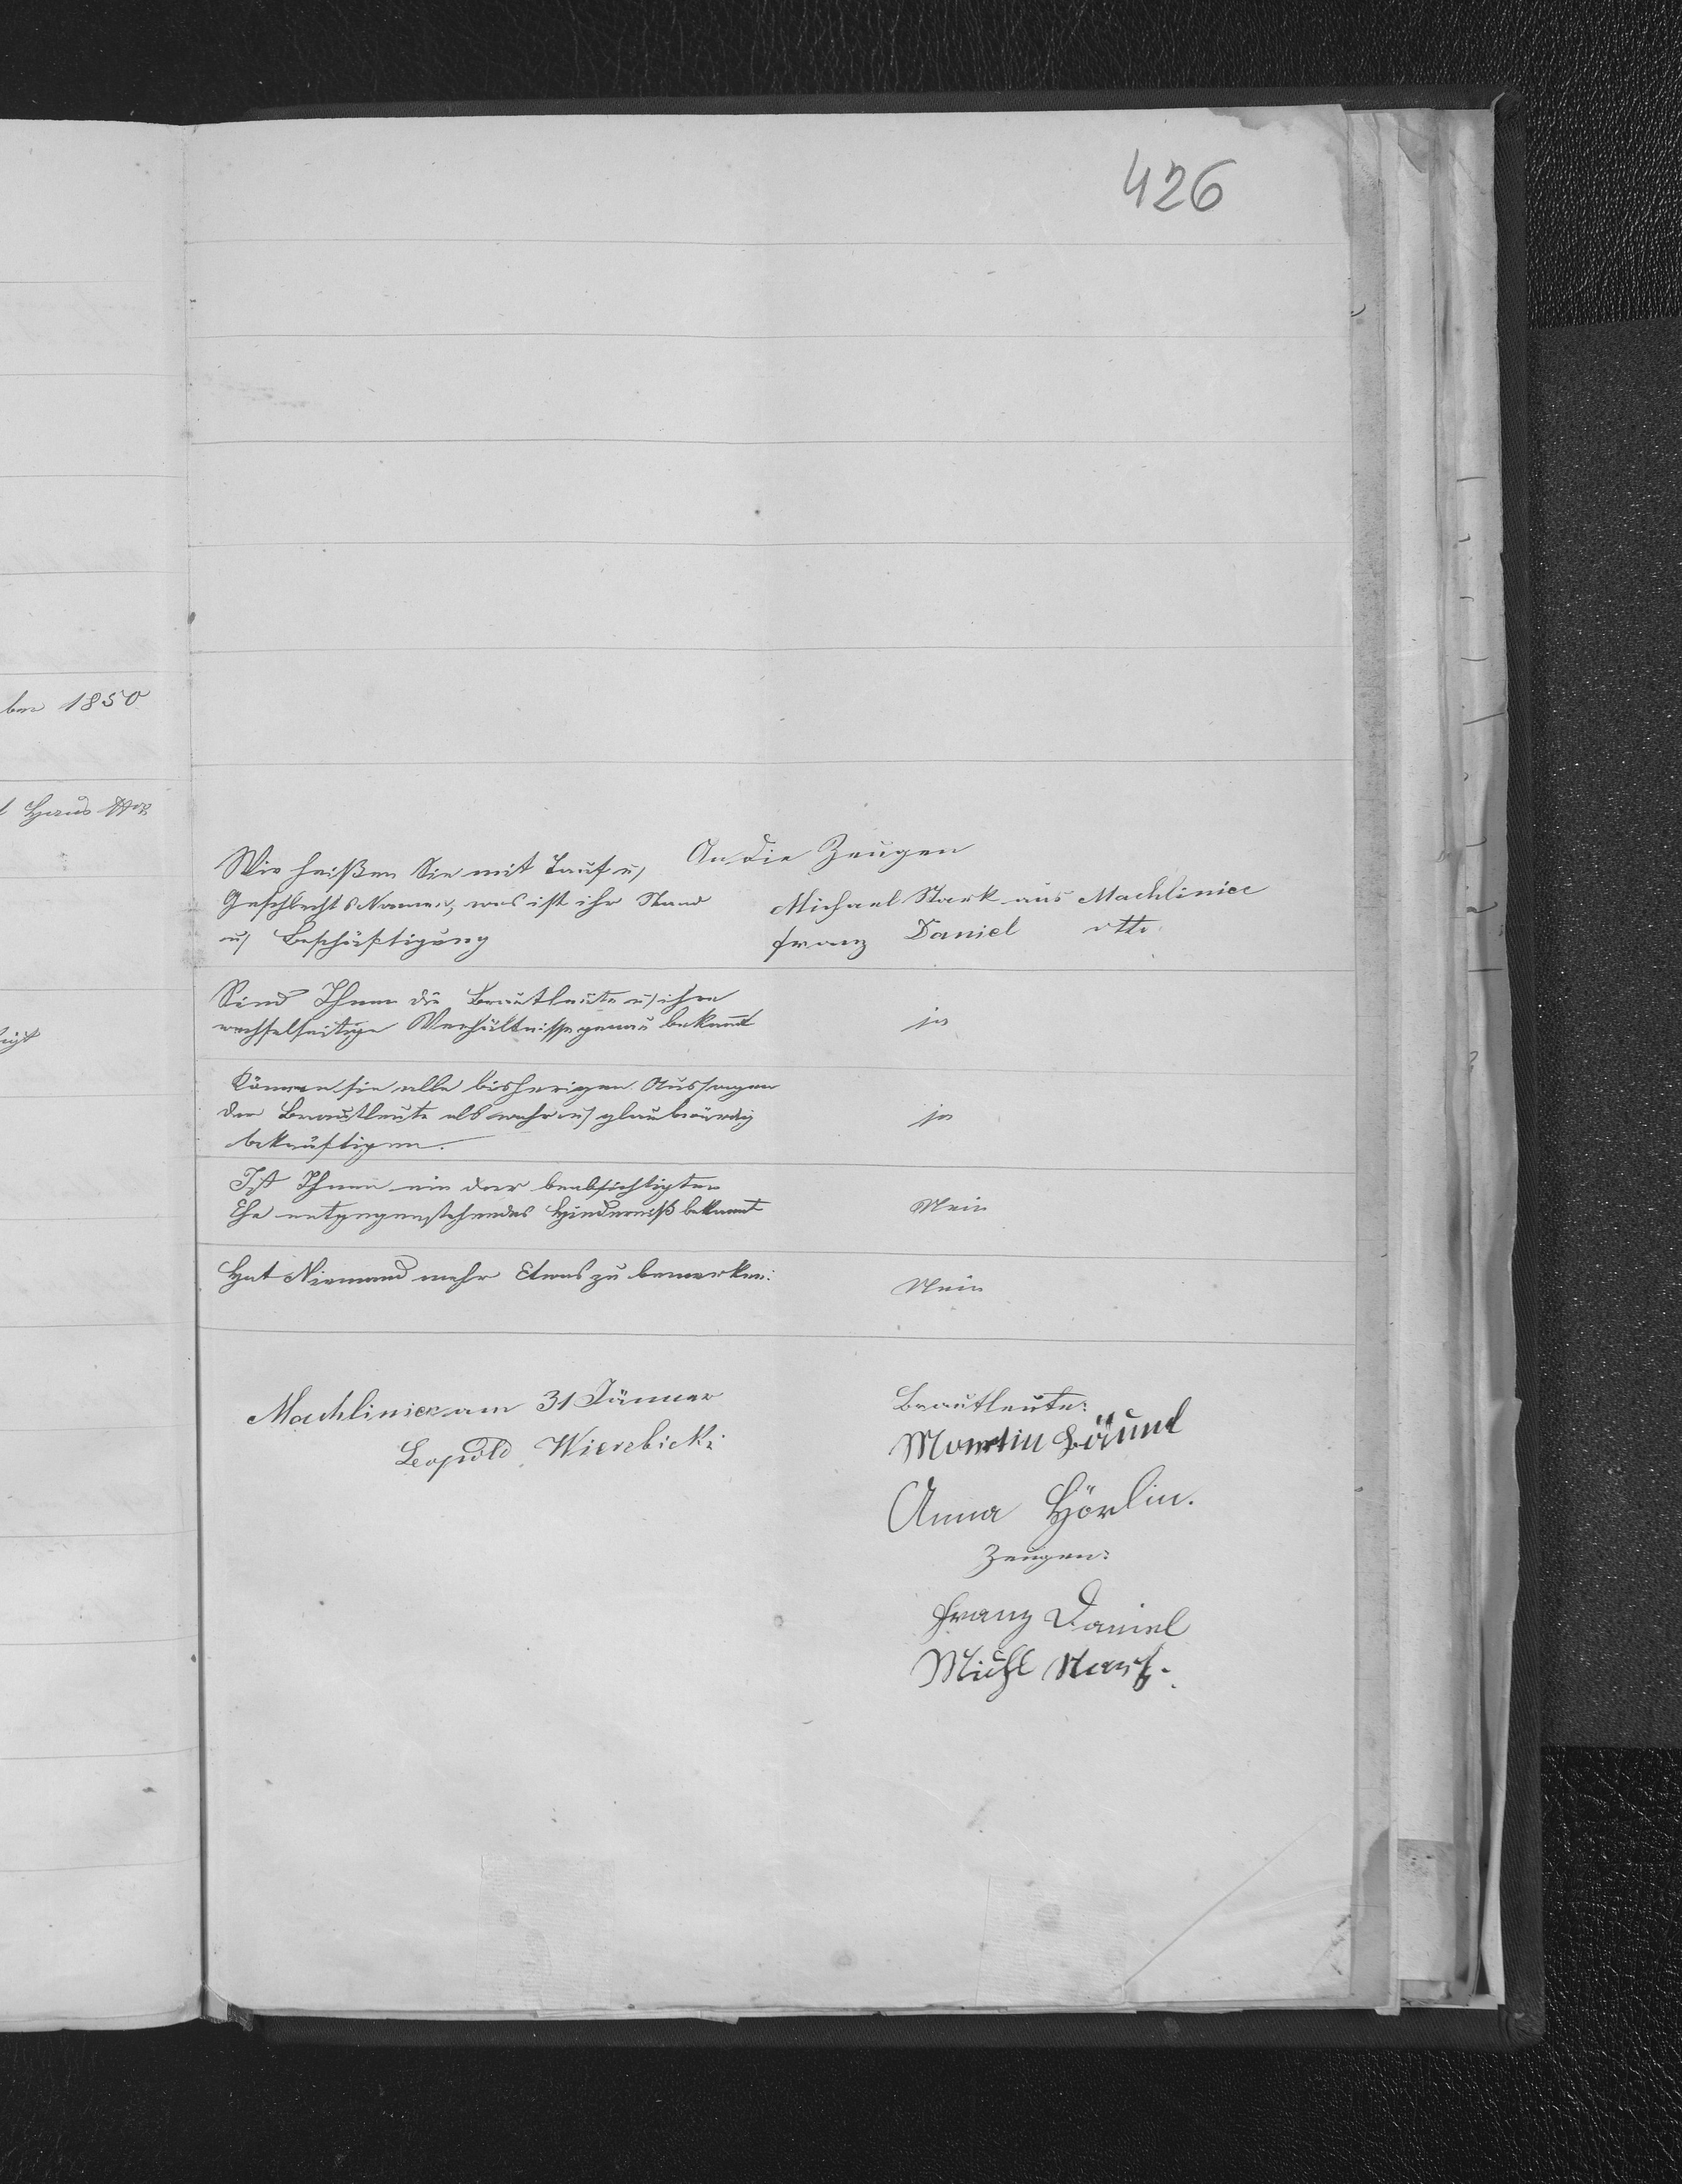 426
ber 1850
Haus Nro
An die Zeugen
Wie heißen Sie mit Tauf u/
Geschlechts Namen, was ist ihr Stand
u/ Beschäftigung
Michael Stark aus Machliniec
Franz Daniel otto
Sind Ihnen die Brautleute u/ ihre
wechselseitige Verhältnisse genau bekannt
ja
Können sie alle bisherigen Aussagen
der Brautleute als wahr u/ glaubwürdig
bekräftigen.
ja
Ist Ihnen ein der beabsichtigten
Ehe entgegenstehendes Hinderniß bekannt
Nein
Hat Niemand mehr Etwas zu bemerken:
Nein
Machliniec am 31 Jänner
Leopold Wierzbicki
Brautleute:
Martin
Anna Hörlin.
Zeugen:
Franz Daniel
Michl Stark.